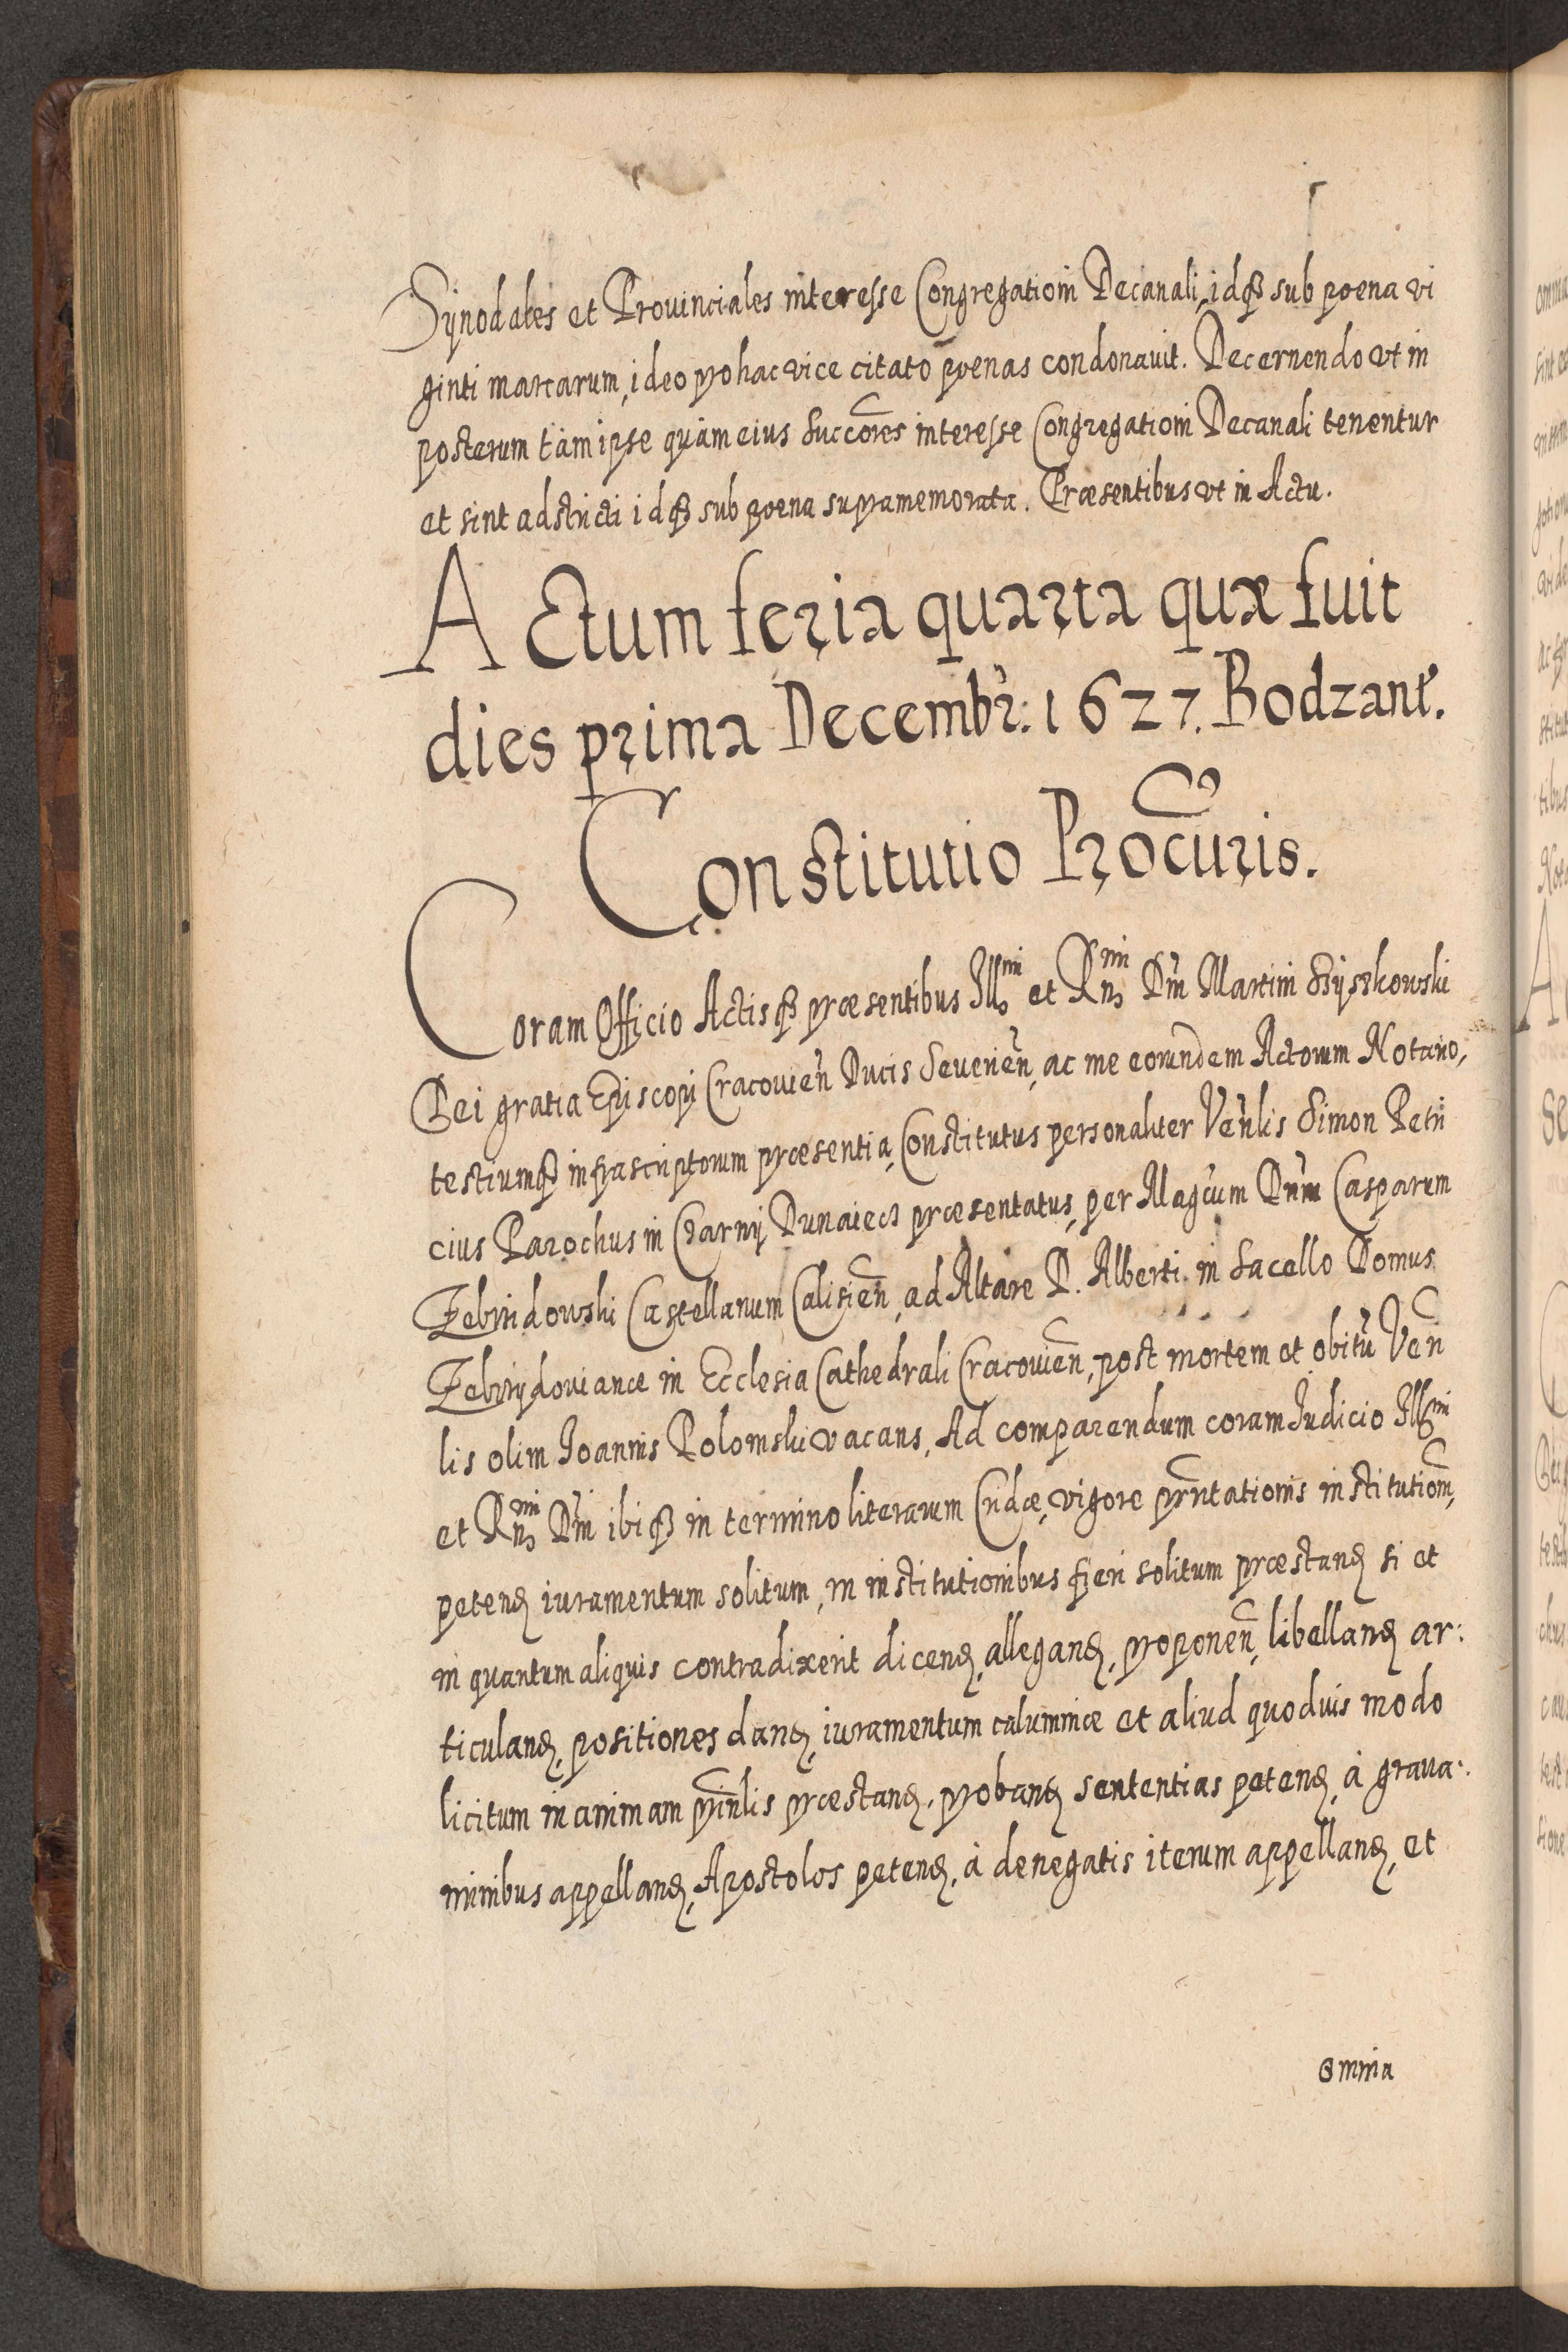 Synodales et Prouinciales interesse Congregationi Decanali, idq₃ sub poena vi
ginti marcarum, ideo pro hac vice citato poenas condonauit. Decernendo vt in
posterum tam ipse quàm eius Succōres interesse Congregationi Decanali tenentur
et sint adstricti idq₃ sub poena supramemorata. Præsentibus vt in Actu.
Actum feria quarta quæ fuit
dies prima Decembr: 1627. Bodzant.
Constitutio Procuris.
Coram Officio Actisq₃ præsentibus Illmi et Rmi Dni Martini Szyszkowski
Dei gratia Episcopi Cracouien Ducis Seuerien, ac me eorundem Actorum Notario,
testiumq₃ infrascriptorum præsentia, Constitutus personaliter Venlis Simon Petri
cius Parochus in Czarny Dunaiecz præsentatus, per Magcum Dnm Casparum
Zebrzidowski Castellanum Calisien, ad Altare D. Alberti in Sacello Domus
Zebrzydouianæ in Ecclesia Cathedrali Cracouien, post mortem et obitu Ven
lis olim Joannis Polomski vacans, Ad comparendum coram Iudicio Illmi
et Rmi Dni ibiq₃ in termino literarum Cridæ, vigore prntationis institutiom,
petend iuramentum solitum, in institutionibus fieri solitum præstand si et
in quantum aliquis contradixerit dicend, allegand, proponen, libelland ar:
ticuland, positiones dand, iuramentum calumniæ et aliud quoduis modo
licitum in animam prinlis præstand, proband sententias petend, à graua:
minibus appelland, Apostolos petend, à denegatis iterum appelland, et
omnia